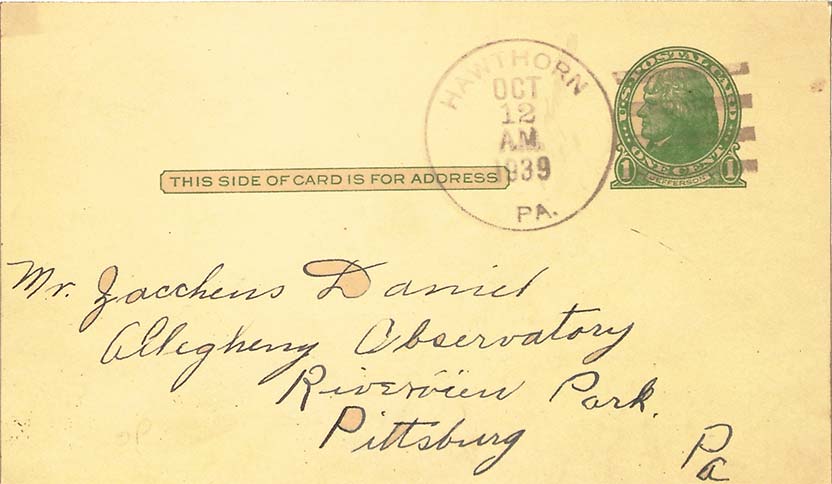 HAWTHORN
OCT
12
A.M.
1939
PA.
U.S. POSTAL CARD
ONE CENT
1 JEFFERSON 1
THIS SIDE OF CARD IS FOR ADDRESS
Mr. Zaccheus Daniel
Allegheny Observatory
Riverview Park.
Pittsburg
Pa